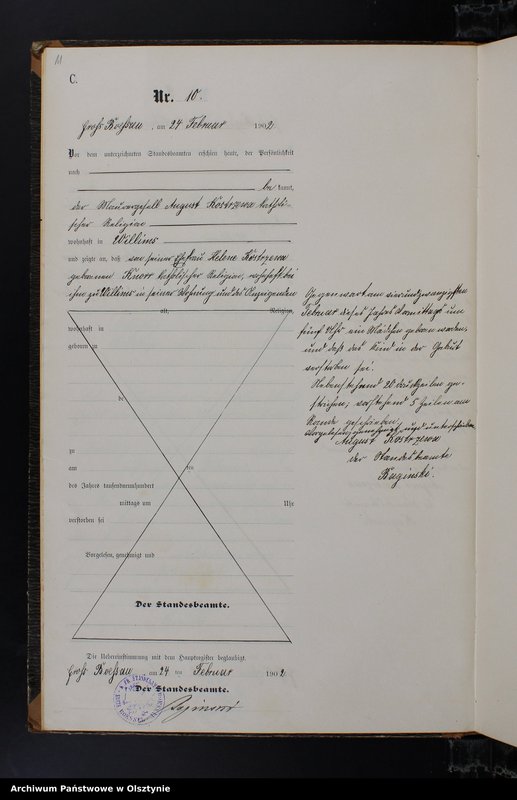 11
C.
Nr. 10.
Groß Boeßau, am 24 Februar 1902
Vor dem unterzeichneten Standesbeamten erschien heute, der Persönlichkeit
nach
be kannt,
der Maurergesell August Kostrzewa katholi-
scher Religion
wohnhaft in Willims
und zeigte an, daß von seiner Ehefrau Helene Kostrzewa
geborenen Knorr katholischer Religion, wohnhaft bei
ihm zu Willims in seiner Wohnung und des Anzeigenden
alt, Religion,
wohnhaft in
geboren zu
de
zu
am ten
des Jahres tausendneunhundert
mittags um Uhr
verstorben sei
Vorgelesen, genehmigt und
Der Standesbeamte.
Gegenwart am vierundzwanzigsten
Februar dieses Jahres Vormittags um
fünf Uhr ein Mädchen geboren worden,
und daß das Kind in der Geburt
verstorben sei.
Nebenstehend 20 Druckzeilen ge-
strichen; vorstehend 5 Zeilen am
Rande geschrieben.
Vorgelesen, genehmigt und unterschrieben
August Kostrzewa
der Standesbeamte
Baginski.
Die Uebereinstimmung mit dem Hauptregister beglaubigt.
Groß Boeßau, am 24 ten Februar 1902
Der Standesbeamte.
Baginski
Archiwum Państwowe w Olsztynie